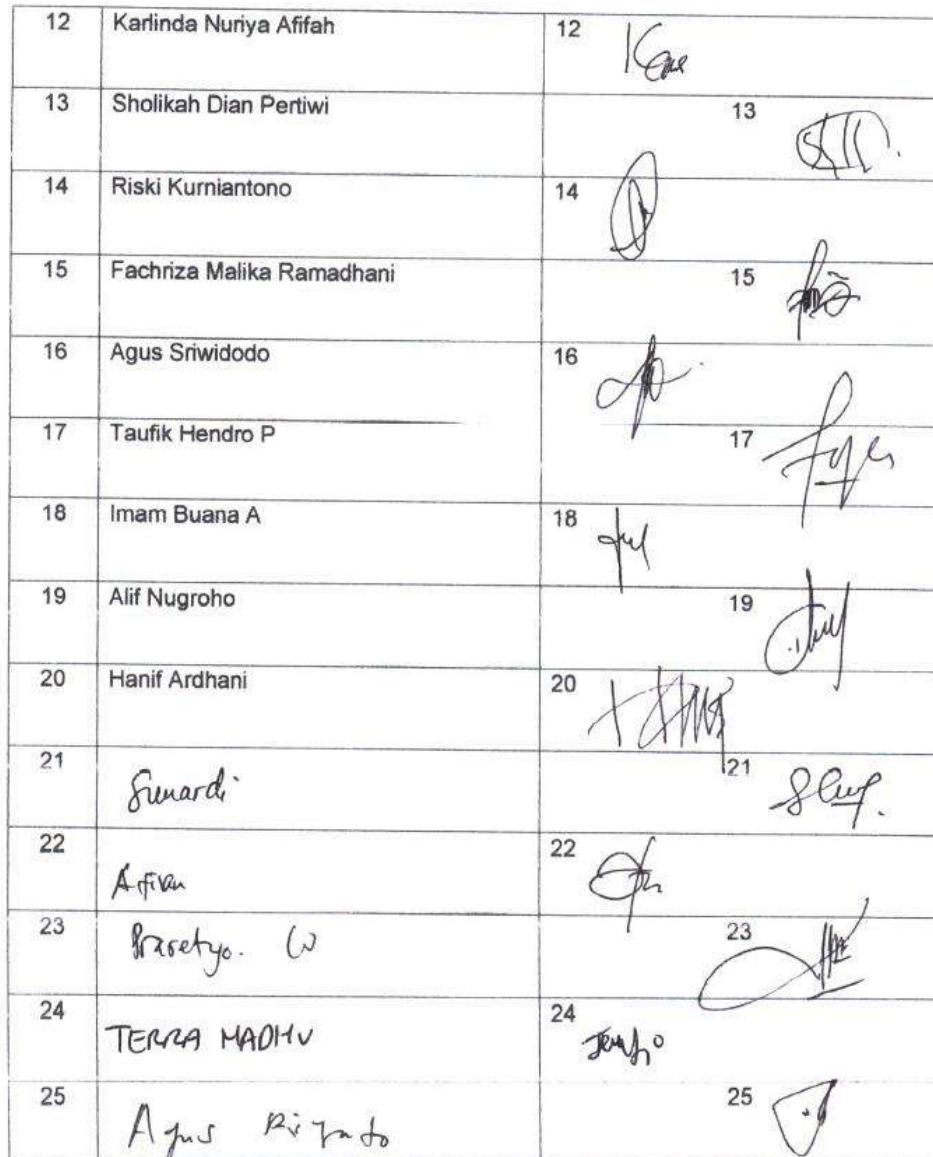 12 Karlinda Nuriya Afifah 12
13 Sholikah Dian Pertiwi 13
14 Riski Kurniantono 14
15 Fachriza Malika Ramadhani 15
16 Agus Sriwidodo 16
17 Taufik Hendro P 17
18 Imam Buana A 18
19 Alif Nugroho 19
20 Hanif Ardhani 20
21 Sunardi 21
22 22
23 Prasetyo. W 23
24 TERRA MADHU 24
25 Agus Riyanto 25